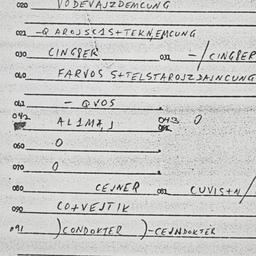 020 VODEVAJZDEMCUNG
021 -QAROJSKIS+TEKN,EMCUNG
030 CINGPER 031 -/CINGPER
040 FARVOS S+TELSTAROJZDAJNCUNG
041 - QVOS
042 ALIMA,J 043 O
060 O
070 O
080 CEJNER 081 CUVIS+N/
090 CO+VEJTIK
091 )CONDOKTER )-CEJNDOKTER